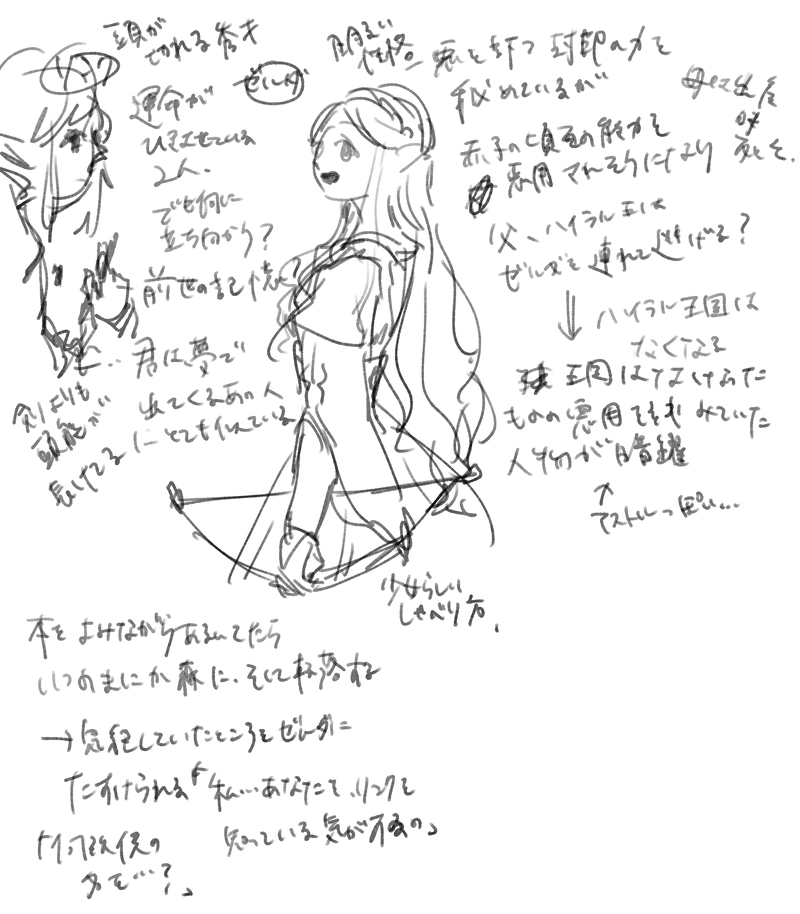 頭が
きれる秀才
運命が
ひきよせている
2人.
でも何に
立ち向かう?
前世の記憶に?
…君は、夢で
出てくるあの人
にとても似ている
剣よりも
頭脳が
長けてる
ゼルダ
明るい
性格=
悪を封つ 封印の力を
秘めているが
赤子の頃その能力を
悪用されそうになり
父、ハイラル王は
ゼルダを連れて逃げる?
母は出産
時
死亡.
ハイラル王国は
なくなる
王国はなくなった
ものの悪用をもくろみていた
人物が暗躍
アストルっぽい…
少女らしい
しゃべり方.
本をよみながらあるいてたら
いつのまにか森に、そして転落する
→気絶していたところをゼルダに
たすけられる「私…あなたを、リンクを
知っている気がするの」
「何故僕の
名を…?」